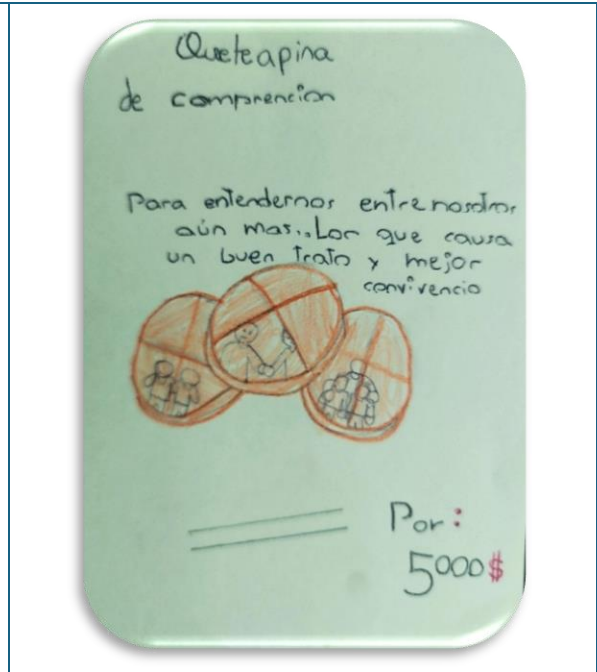 Queteapina
de comprencion
Para entendernos entre nosotros
aún mas..Lor que causa
un buen trato y mejor
convivencia
Por:
5000$